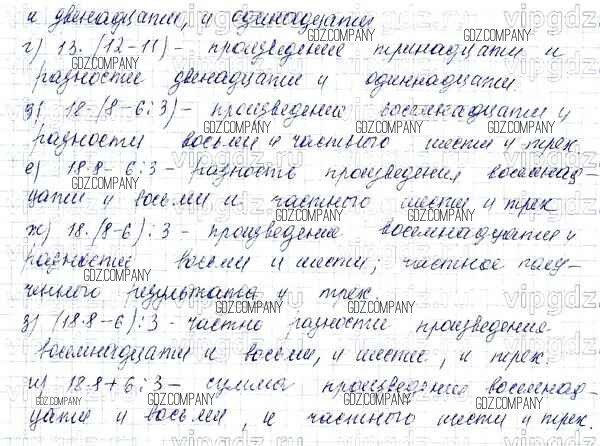 и двенадцати, и одинадцати
г) 13·(12-11) - произведение тринадцати и
разности двенадцати и одиннадцати.
д) 18·(8-6:3) - произведение восемнадцати и
разности восьми и частного шести и трех.
е) 18·8-6:3 - разность произведения восемнад-
цати и восьми и частного шести и трех
ж) 18·(8-6):3 - произведение восемнадцати и
разности восьми и шести; частное полу-
ченного результата и трех.
з) (18·8-6):3 - частно разности произведения
восемнадцати и восьми, и шести, и трех.
и) 18·8+6:3 - сумма произведение восемнад-
цати и восьми, и частного шести и трех.